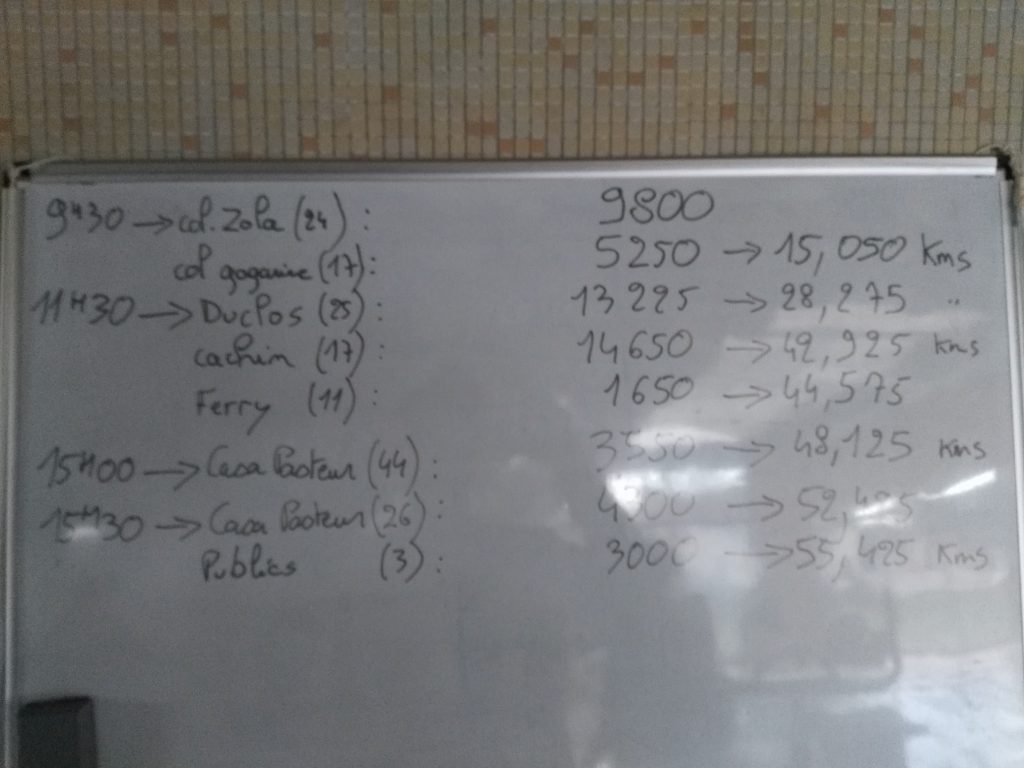 9H30 → col. Zola (24) : 9800
col gagarine (17) : 5250 → 15,050 Kms
11H30 → Duclos (25) : 13 225 → 28,275 "
cachin (17) : 14 650 → 42,925 Kms
Ferry (11) : 1 650 → 44,575
15H00 → Casa Pasteur (44) : 3550 → 48,125 Kms
15H30 → Casa Pasteur (26) : 4300 → 52,425
Publics (3) : 3000 → 55,425 Kms